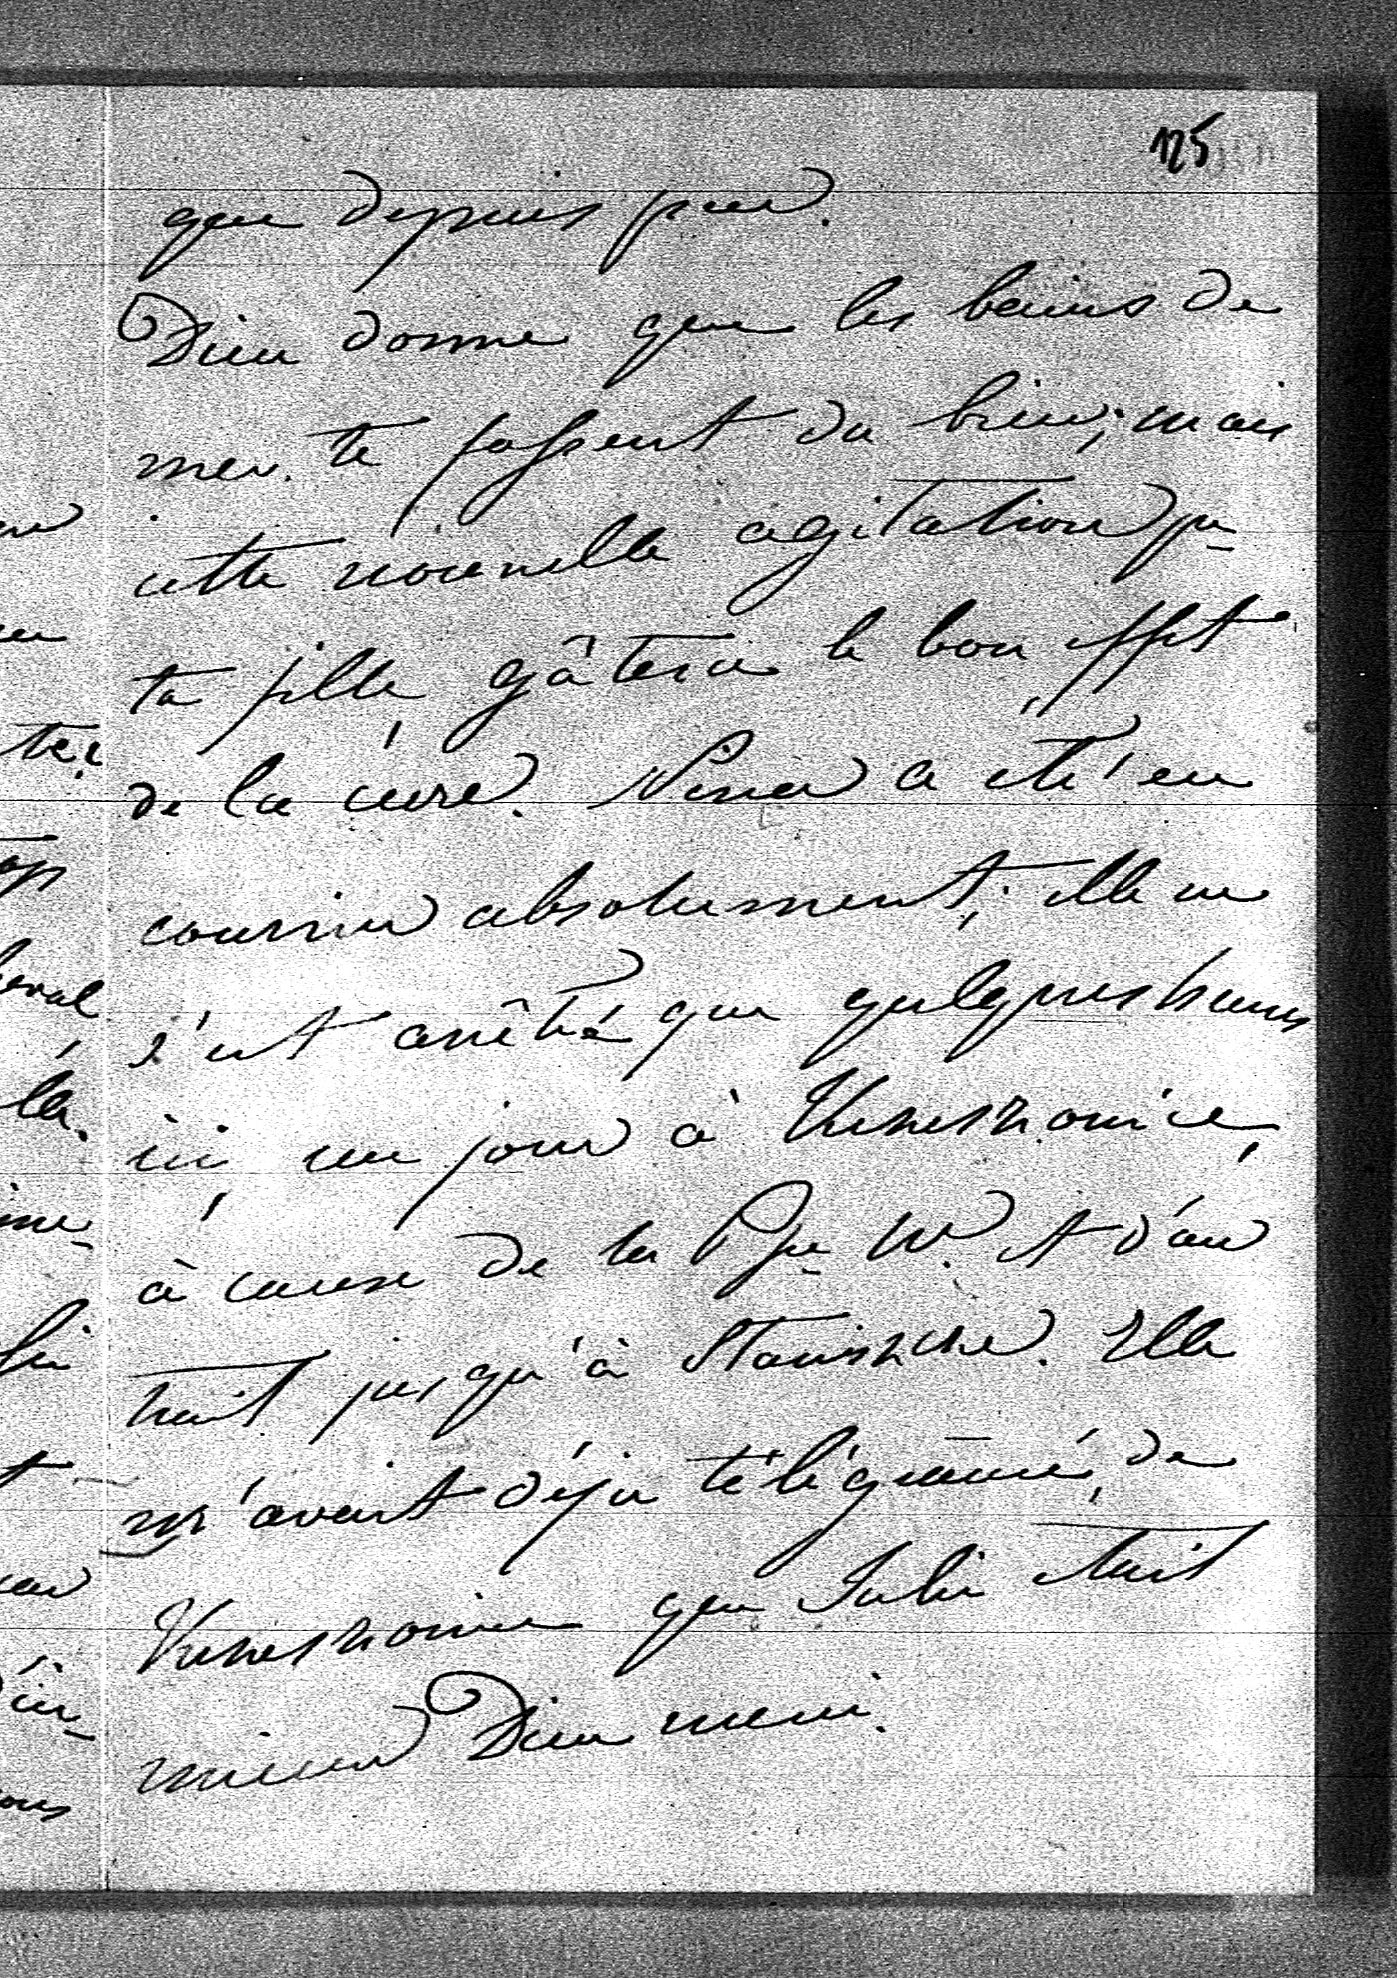 125
que depuis peu.
Dieu donne que les bains de
mer te fassent du bien; mais
cette nouvelle agitation pr
ta fille gâtera le bon effet
de la cure. Nina a été en
courrier absolument; elle ne
s'est arrêtée que quelques heures
ici, un jour à
à cause de la Psse W. et d'un
trait jusqu'à Elle
m'avait déjà télégramé, de
que Julie était
mieux Dieu merci.